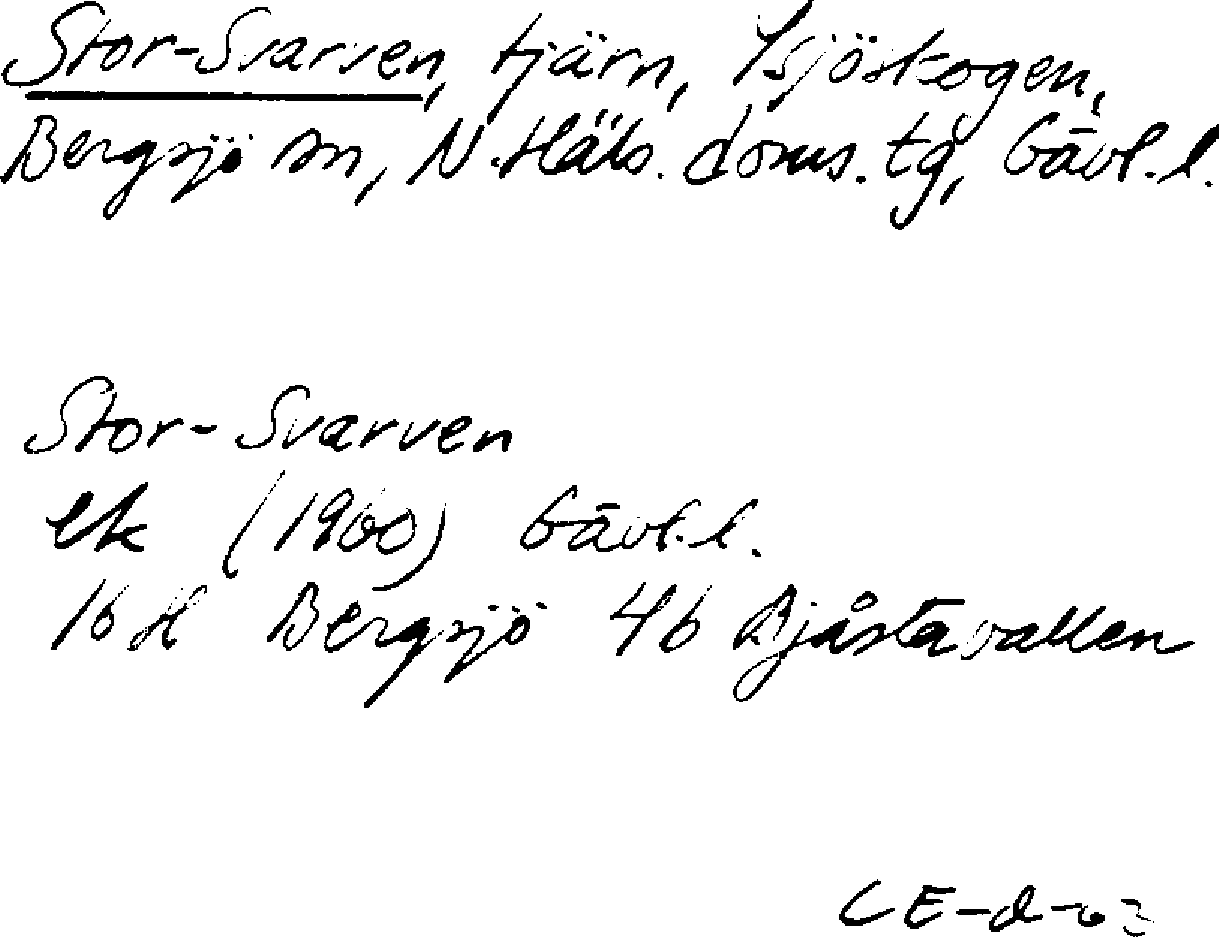 Stor-Svarven, tjärn, Ysjöskogen,
Bergsjö sn, N.Häls. doms. tg, Gävl.l.
Stor-Svarven
ek (1960) Gävl.l.
16H Bergsjö 4b Bjåstavallen
CE-d-63